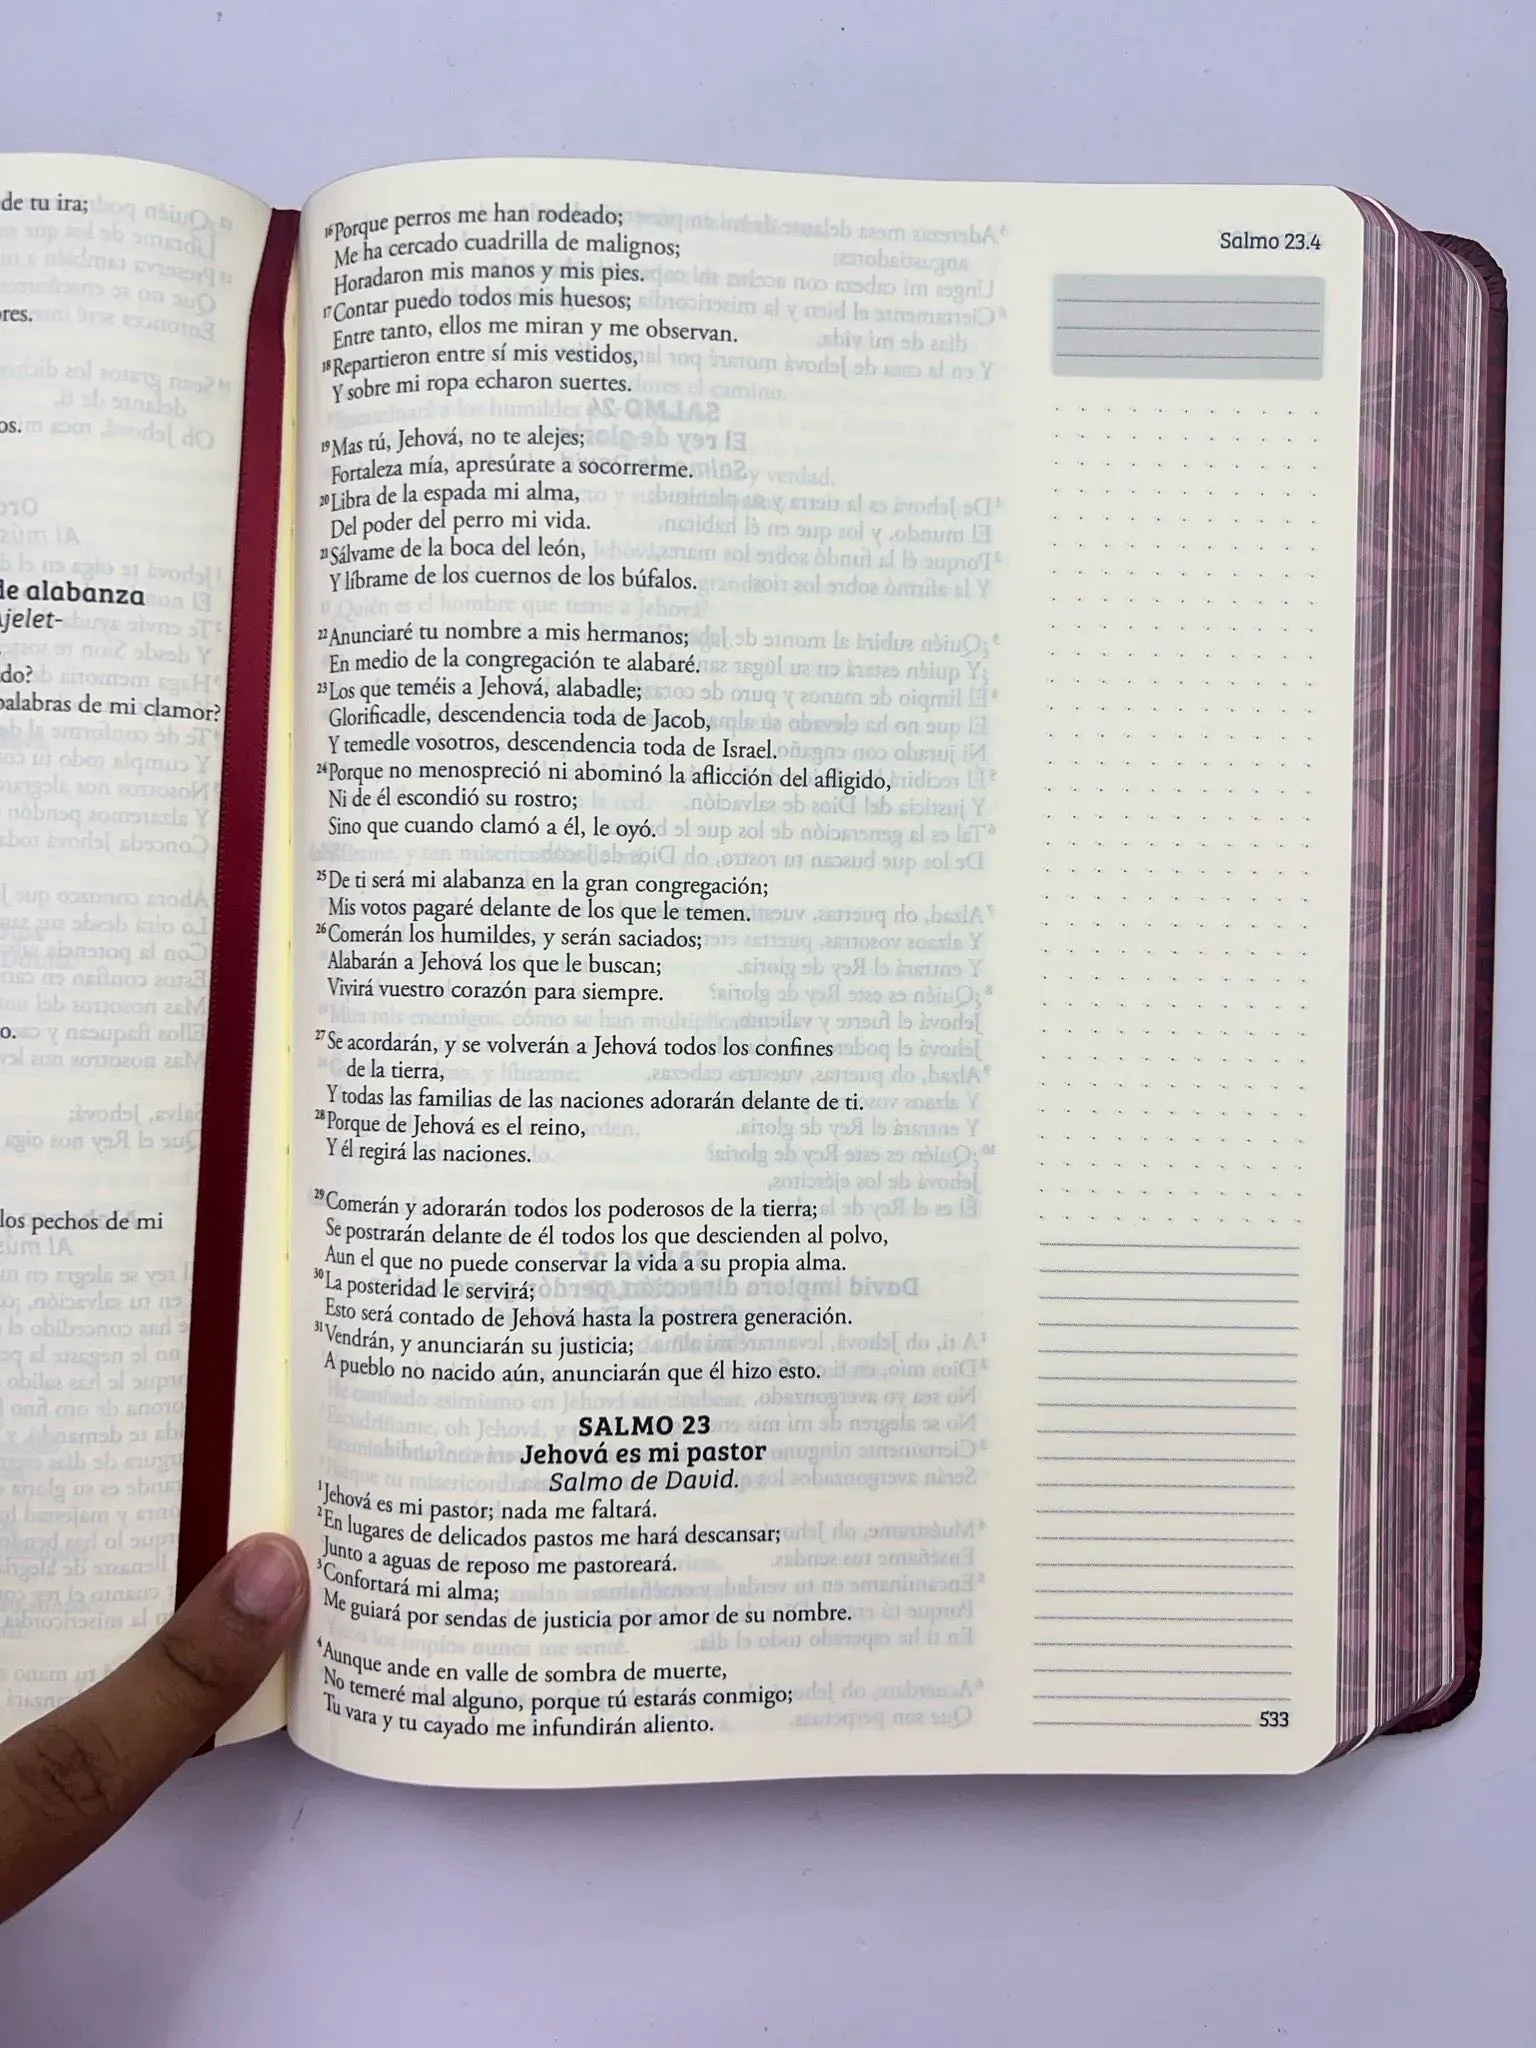 de tu ira;
res.
os.
de alabanza
Ajelet-
do?
palabras de mi clamor?
o.
los pechos de mi
Salmo 23.4
16 Porque perros me han rodeado;
Me ha cercado cuadrilla de malignos;
Horadaron mis manos y mis pies.
17 Contar puedo todos mis huesos;
Entre tanto, ellos me miran y me observan.
18 Repartieron entre sí mis vestidos,
Y sobre mi ropa echaron suertes.
19 Mas tú, Jehová, no te alejes;
Fortaleza mía, apresúrate a socorrerme.
20 Libra de la espada mi alma,
Del poder del perro mi vida.
21 Sálvame de la boca del león,
Y líbrame de los cuernos de los búfalos.
22 Anunciaré tu nombre a mis hermanos;
En medio de la congregación te alabaré.
23 Los que teméis a Jehová, alabadle;
Glorificadle, descendencia toda de Jacob,
Y temedle vosotros, descendencia toda de Israel.
24 Porque no menospreció ni abominó la aflicción del afligido,
Ni de él escondió su rostro;
Sino que cuando clamó a él, le oyó.
25 De ti será mi alabanza en la gran congregación;
Mis votos pagaré delante de los que le temen.
26 Comerán los humildes, y serán saciados;
Alabarán a Jehová los que le buscan;
Vivirá vuestro corazón para siempre.
27 Se acordarán, y se volverán a Jehová todos los confines
de la tierra,
Y todas las familias de las naciones adorarán delante de ti.
28 Porque de Jehová es el reino,
Y él regirá las naciones.
29 Comerán y adorarán todos los poderosos de la tierra;
Se postrarán delante de él todos los que descienden al polvo,
Aun el que no puede conservar la vida a su propia alma.
30 La posteridad le servirá;
Esto será contado de Jehová hasta la postrera generación.
31 Vendrán, y anunciarán su justicia;
A pueblo no nacido aún, anunciarán que él hizo esto.
SALMO 23
Jehová es mi pastor
Salmo de David.
1 Jehová es mi pastor; nada me faltará.
2 En lugares de delicados pastos me hará descansar;
Junto a aguas de reposo me pastoreará.
3 Confortará mi alma;
Me guiará por sendas de justicia por amor de su nombre.
4 Aunque ande en valle de sombra de muerte,
No temeré mal alguno, porque tú estarás conmigo;
Tu vara y tu cayado me infundirán aliento.
533